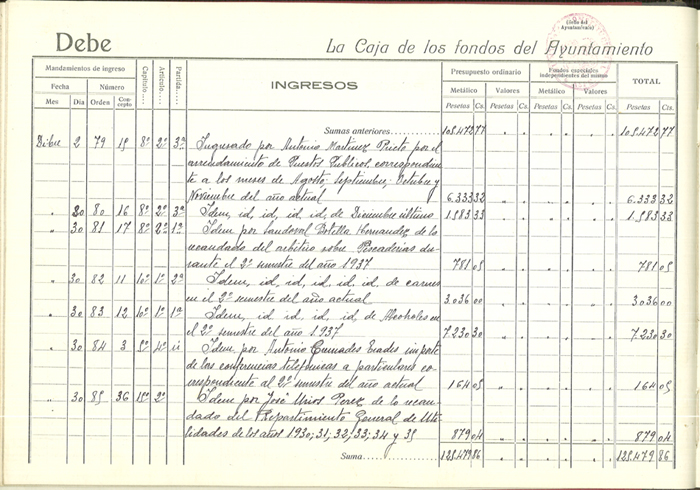 (Sello del
Ayuntamiento)
Debe
La Caja de los fondos del Ayuntamiento
Mandamientos de ingreso
Fecha Número
Mes Día Orden Concepto
Capítulo.... Artículo.... Partida....
INGRESOS
Presupuesto ordinario
Metálico Valores
Pesetas Cs. Pesetas Cs.
Fondos especiales
independientes del mismo
Metálico Valores
Pesetas Cs. Pesetas Cs.
TOTAL
Pesetas Cs.
Sumas anteriores 108.472 77 " " " " " " 108.472 77
Dibre 2 79 15 8º 2º 3ª Ingresado por Antonio Martinez Prieto por el
arrendamiento de Puestos Publicos, correspondien
te a los meses de Agosto, Septiembre, Octubre y
Noviembre del año actual 6.333 32 " " " " " " 6.333 32
" 30 80 16 8º 2º 3ª Idem, id, id, id, id, de Diciembre último 1.583 33 " " " " " " 1.583 33
" 30 81 17 8º 2º 1ª Idem por Sandoval Botella Hernandez de lo
recaudado del arbitrio sobre Pescaderias du-
rante el 2º semestre del año 1937 781 05 " " " " " " 781 05
" 30 82 11 10º 1º 2ª Idem, id, id, id, id, id, de carnes
en el 2º semestre del año actual 3.036 00 " " " " " " 3.036 00
" 30 83 12 10º 1º 1ª Idem, id, id, id, id, de Alcoholes en
el 2º semestre del año 1937 7.230 30 " " " " " " 7.230 30
" 30 84 3 5º 4º ii Idem por Antonio importe
de las conferencias telefonicas a particulares co-
rrespondiente al 2º semestre del año actual 164 05 " " " " " " 164 05
" 30 85 36 15º 2º Idem por José Uriol Perez de lo recau-
dado del Repartimiento General de Uti-
lidades de los años 1930; 31; 32; 33; 34 y 35 879 04 " " " " " " 879 04
Suma 128.479 86 " " " " " " 128.479 86